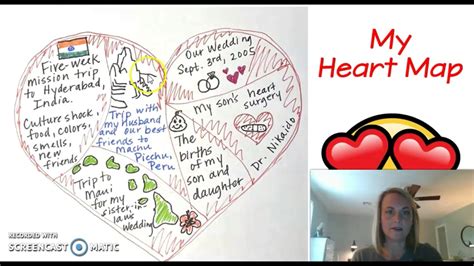 My
Heart Map
Five-week
mission trip
to Hyderabad,
India.
Culture shock,
food, colors,
smells,
new
friends
Trip with
my husband
and our best
friends to
Machu
Picchu,
Peru
Trip to
Maui
for my
sister-in
laws
wedding
Our Wedding
Sept. 3rd, 2005
my son's heart
surgery
Dr. Nikaido
The
births
of my
son and
daughter
RECORDED WITH
SCREENCAST-O-MATIC